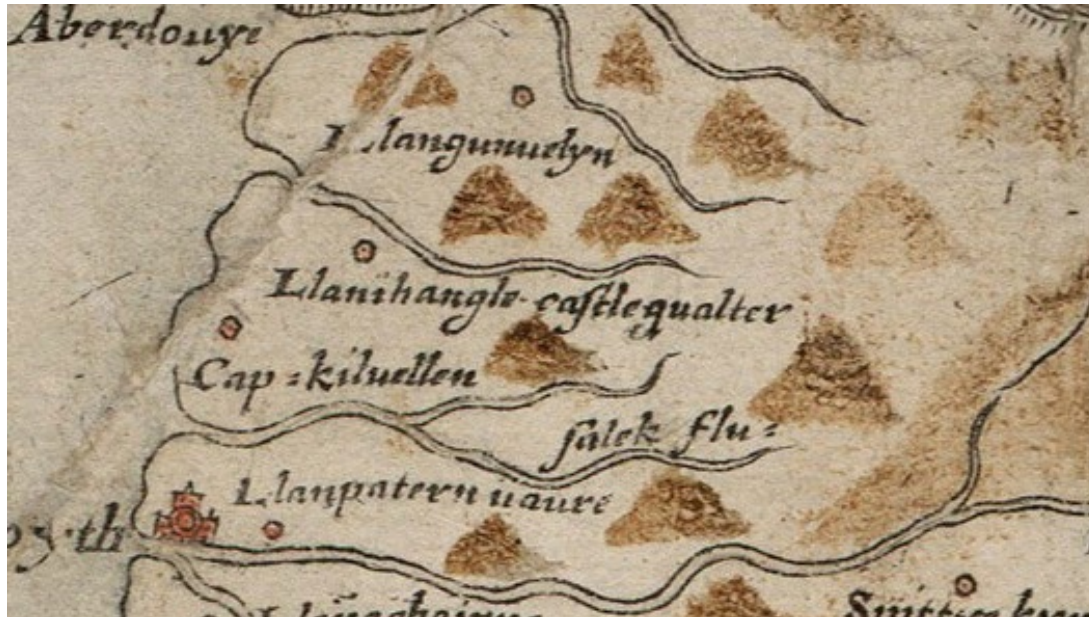 Aberdouye
Llangunuelyn
Llanihangle castlegualter
Cap = kiluellen
salek flu =
Llanpatern uaure